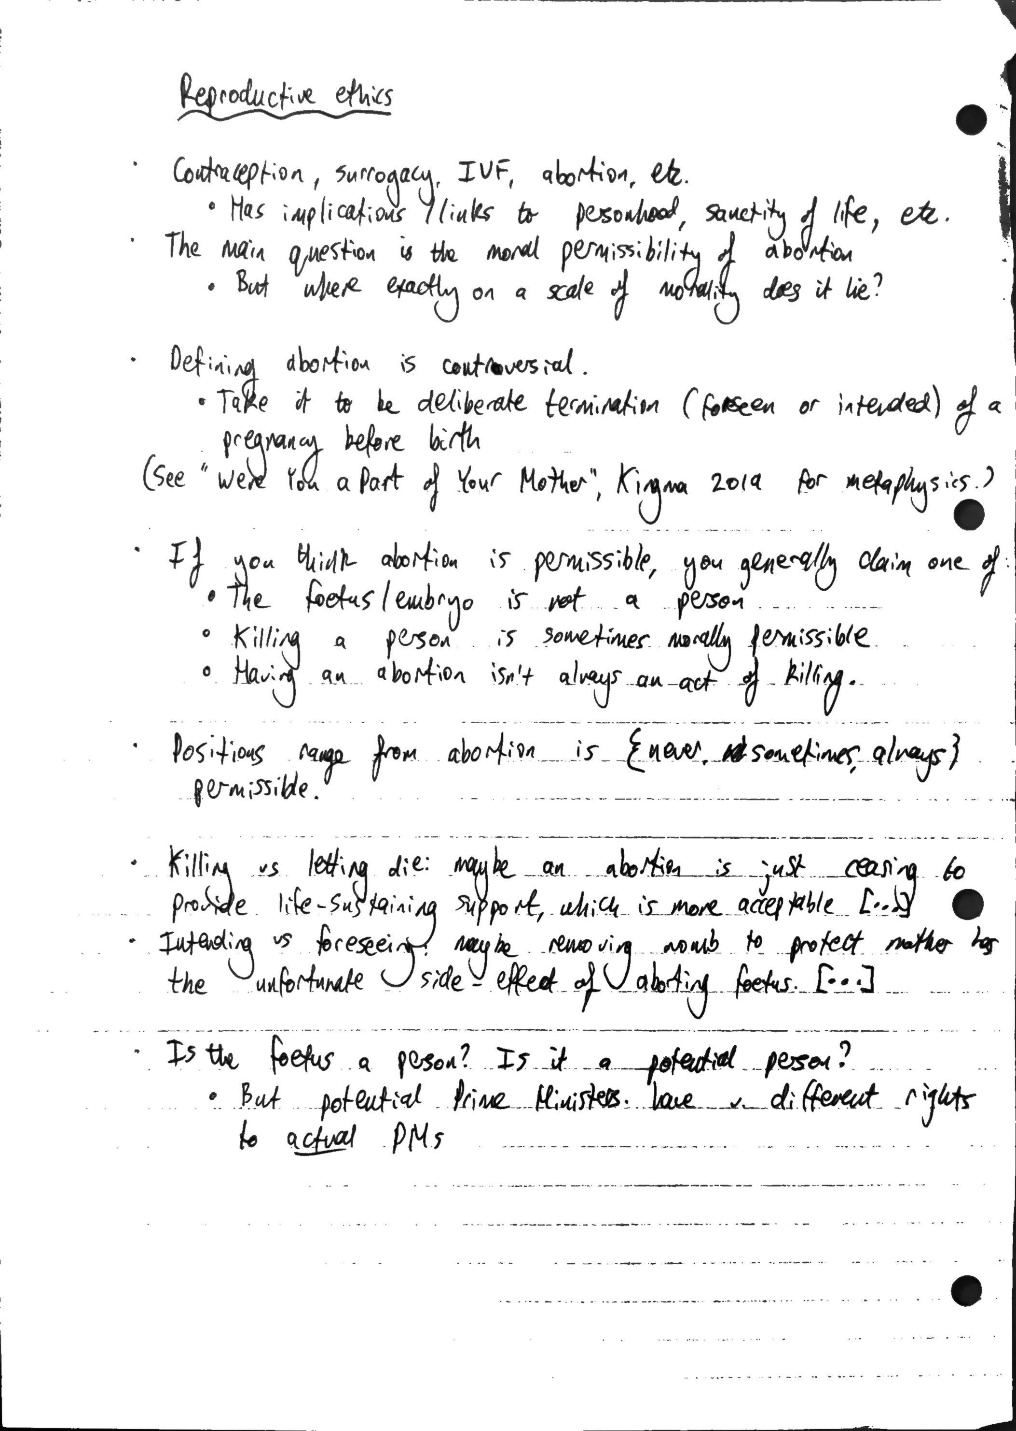 Reproductive ethics
· Contraception, surrogacy, IVF, abortion, etc.
• Has implications / links to personhood, sanctity of life, etc.
· The main question is the moral permissibility of abortion
• But where exactly on a scale of morality does it lie?
· Defining abortion is controversial.
• Take it to be deliberate termination (forseen or intended) of a
pregnancy before birth
(See "Were You a Part of Your Mother", Kingma 2019 for metaphysics.)
· If you think abortion is permissible, you generally claim one of:
• The foetus/embryo is not a person
• Killing a person is sometimes morally permissible
• Having an abortion isn't always an act of killing.
· Positions range from abortion is {never, sometimes, always}
permissible.
· Killing vs letting die: maybe an abortion is just ceasing to
provide life-sustaining support, which is more acceptable [...]
· Intending vs foreseeing: maybe removing womb to protect mother has
the unfortunate side-effect of aborting foetus. [...]
· Is the foetus a person? Is it a potential person?
• But potential Prime Ministers have v. different rights
to actual PMs